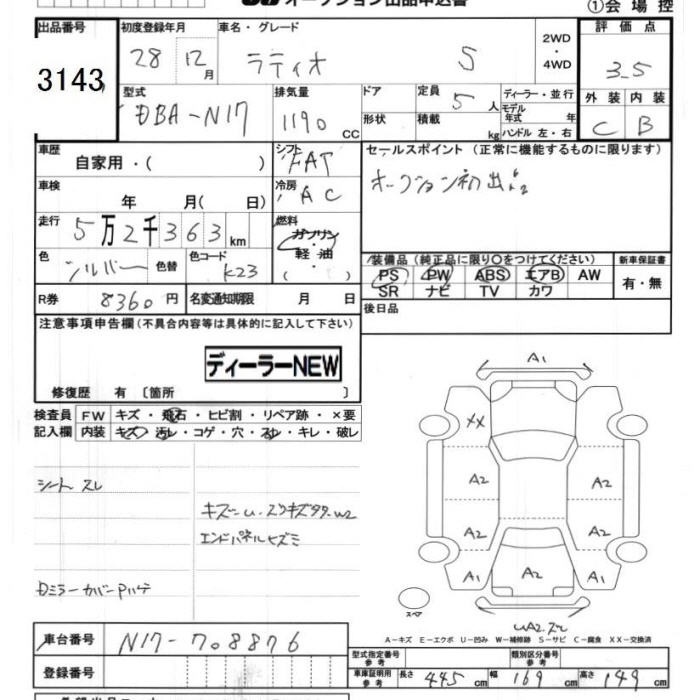 オークション出品申込書
①会場控
出品番号 初度登録年月 車名・グレード 評価点
3143 28 12月 ラティオ S 2WD・4WD 3.5
型式 排気量 ドア 定員 ディーラー・並行 外装 内装
DBA-N17 1190 CC 形状 5人 積載 kg モデル年式 年 ハンドル 左・右 C B
車歴 自家用・( ) シフト FAT セールスポイント (正常に機能するものに限ります)
車検 年 月( 日) 冷房 AC オークション初出品
走行 5万2千363km 燃料 ガソリン・軽油・( )
色 シルバー 色替 色コード K23
装備品 (純正品に限り○をつけてください) 新車保証書
PS PW ABS エアB AW 有・無
SR ナビ TV カワ
R券 8360円 名変通知期限 月 日 後日品
注意事項申告欄 (不具合内容等は具体的に記入して下さい)
ディーラーNEW
修復歴 有 〔箇所 〕
検査員記入欄 FW キズ・飛石・ヒビ割・リペア跡・×要
内装 キズ・汚レ・コゲ・穴・スレ・キレ・破レ
シートスレ
エンドパネルヒズミ
A1
XX
A2 A2
A2 A2
A1 A2 A1
スペア
A-キズ E-エクボ U-凹み W-補修跡 S-サビ C-腐食 XX-交換済
車台番号 N17-708876
登録番号
型式指定番号 参考 類別区分番号 参考
車庫証明用 参考 長さ 445cm 幅 169cm 高さ 149cm